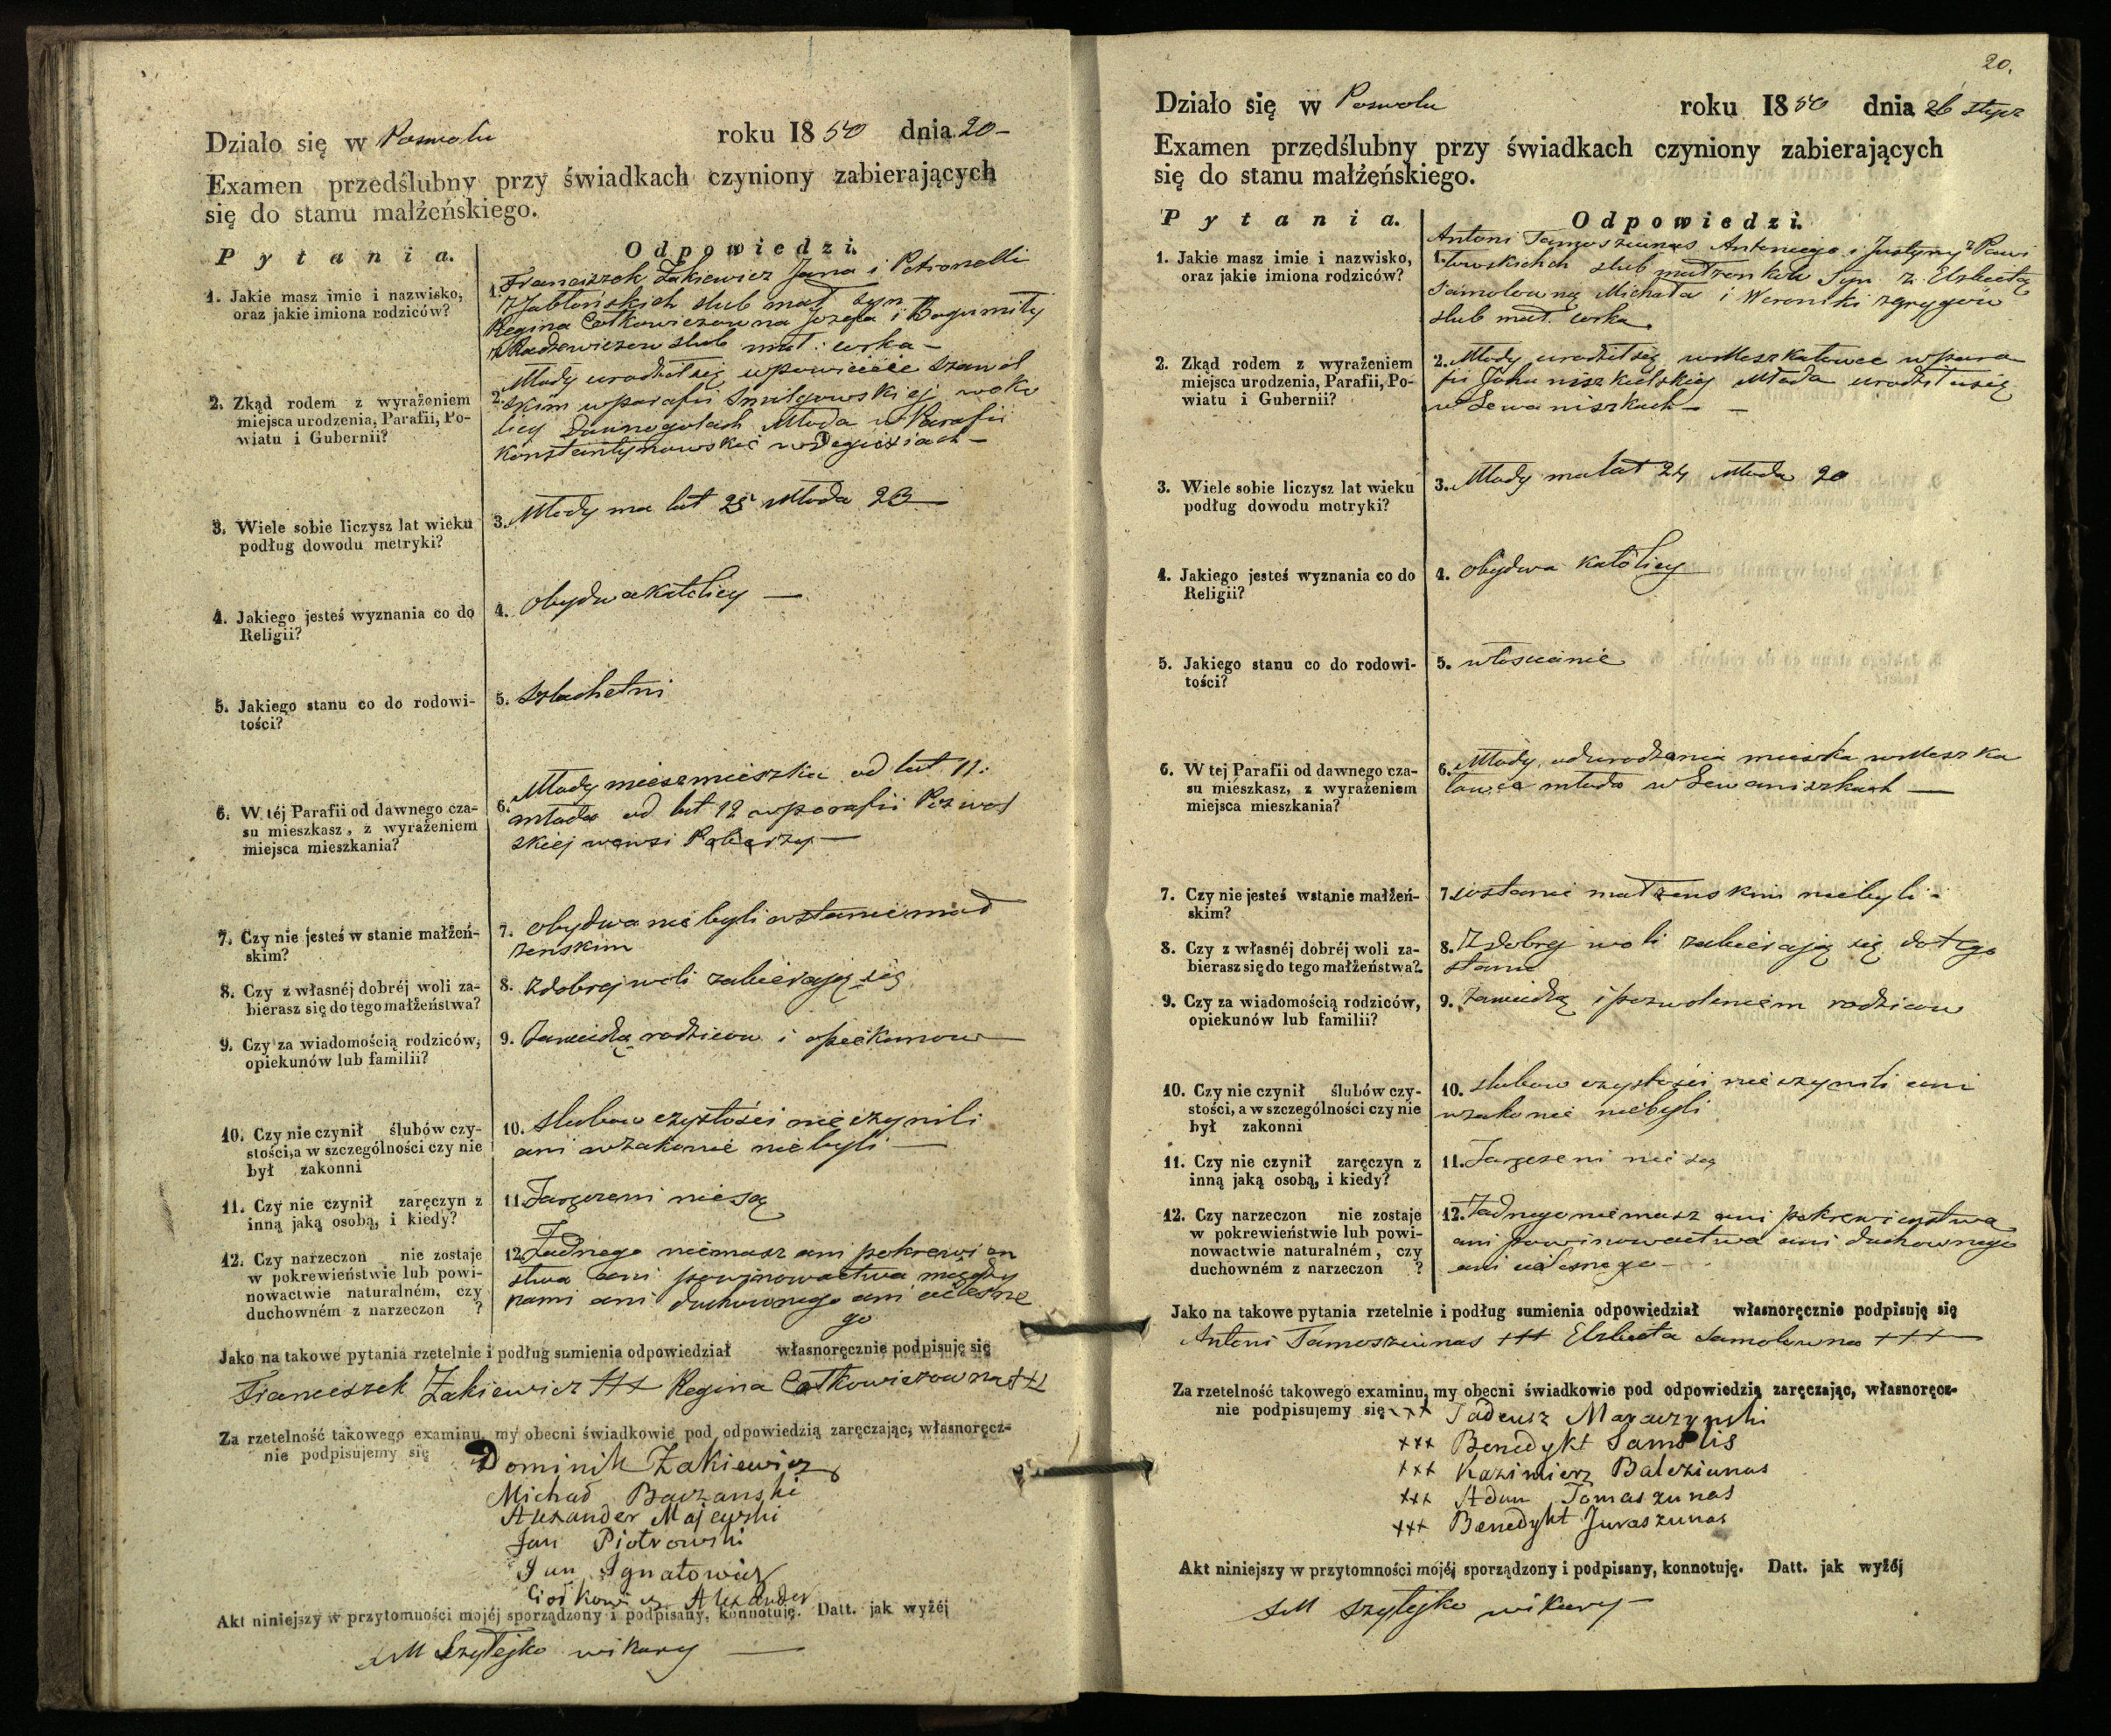 Działo się w Poswolu roku 1850 dnia 20 –
Examen przedślubny przy świadkach czyniony zabierających
się do stanu małżeńskiego.
Pytania. Odpowiedzi.
1. Jakie masz imie i nazwisko,
oraz jakie imiona rodziców?
1. Franciszek Żakiewicz Jana i Petronelli
z Jabłońskich slub mał syn
Regina Cołkowiczowna Jozefa i Bogumiły
z Radzewiczow slub mał: corka –
2. Zkąd rodem z wyrażeniem
miejsca urodzenia, Parafii, Po-
wiatu i Gubernii?
2. Młody urodził się wpowiecie Szawel
skim wparafii Smilgowskiej woko
licy Młoda w Parafii
Konstantynowskie
3. Wiele sobie liczysz lat wieku
podług dowodu metryki?
3. Młody ma lat 25 Młoda 23 –
4. Jakiego jesteś wyznania co do
Religii?
4. obydwa katolicy –
5. Jakiego stanu co do rodowi-
tości?
5. Szlachetni
6. W téj Parafii od dawnego cza-
su mieszkasz, z wyrażeniem
miejsca mieszkania?
6. Młody mieszka od lat 11.
młoda od lat 12 wparafii Pozwol
skiej wewsi
7. Czy nie jesteś w stanie małżeń-
skim?
7. obydwa nie byli wstanie mał
zenskim
8. Czy z własnéj dobréj woli za-
bierasz się do tego małżeństwa?
8. Zdobrej woli zabierają się
9. Czy za wiadomością rodziców,
opiekunów lub familii?
9. Zawiedzą rodzicow i opiekunow –
10. Czy nie czynił ślubów czy-
stości, a w szczególności czy nie
był zakonni
10. slubow czystości nie czynili
ani wzakonie niebyli –
11. Czy nie czynił zaręczyn z
inną jaką osobą, i kiedy?
11. Zaręczeni niesą
12. Czy narzeczon nie zostaje
w pokrewieństwie lub powi-
nowactwie naturalném, czy
duchowném z narzeczon ?
12. Żadnego niemasz ani pokrewien
stwa ani powinowactwa między
nami ani duchownego ani cielesne
go
Jako na takowe pytania rzetelnie i podług sumienia odpowiedział własnoręcznie podpisuję się
Franciszek Żakiewicz +++ Regina Cołkowiczowna +++
Za rzetelność takowego examinu, my obecni świadkowie pod odpowiedzią zaręczając, własnoręcz-
nie podpisujemy się
Dominik Żakiewicz
Michał Baczanski
Alexander Majewski
Jan Piotrowski
Jan Ignatowicz
Alexander
Akt niniejszy w przytomności mojéj sporządzony i podpisany, konnotuję. Datt. jak wyżéj
Szyłejko wikary –
20.
Działo się w Poswolu roku 1850 dnia 26 stycz
Examen przedślubny przy świadkach czyniony zabierających
się do stanu małżeńskiego.
Pytania. Odpowiedzi.
1. Jakie masz imie i nazwisko,
oraz jakie imiona rodziców?
1. Antoni Tamoszunas Antoniego i Justyny z Pawi
łowskichch slub małzonkow Syn z Elzbietą
Samolowną Michała i Weroniki
slub mał. corka
2. Zkąd rodem z wyrażeniem
miejsca urodzenia, Parafii, Po-
wiatu i Gubernii?
2. Młody urodził się w Meszkałowce wpara
fii Johaniszkielskiej Młoda urodziłasię
w Lewaniszkach – –
3. Wiele sobie liczysz lat wieku
podług dowodu metryki?
3. Młody ma lat 24 Młoda 20
4. Jakiego jesteś wyznania co do
Religii?
4. obydwa katolicy
5. Jakiego stanu co do rodowi-
tości?
5. włoscianie
6. W tej Parafii od dawnego cza-
su mieszkasz, z wyrażeniem
miejsca mieszkania?
6. Młody odurodzenia mieszka w Meszka
łowce młoda w Lewaniszkach –
7. Czy nie jesteś wstanie małżeń-
skim?
7. wstanie małzenskim niebyli –
8. Czy z własnéj dobréj woli za-
bierasz się do tego małżeństwa?
8. Zdobrej woli zabierają się dotego
stanu
9. Czy za wiadomością rodziców,
opiekunów lub familii?
9. Zawiedzą i pozwoleniem rodzicow
10. Czy nie czynił ślubów czy-
stości, a w szczególności czy nie
był zakonni
10. slubow czystości nie czynili ani
wzakonie niebyli
11. Czy nie czynił zaręczyn z
inną jaką osobą, i kiedy?
11. Zaręczeni nie są
12. Czy narzeczon nie zostaje
w pokrewieństwie lub powi-
nowactwie naturalném, czy
duchowném z narzeczon ?
12. Żadnego niemasz ani pokrewienstwa
ani powinowactwa ani duchownego
ani cielesnego –
Jako na takowe pytania rzetelnie i podług sumienia odpowiedział własnoręcznie podpisuję się
Antoni Tamoszunas +++ Elzbieta Samolowna +++
Za rzetelność takowego examinu, my obecni świadkowie pod odpowiedzią zaręczając, własnoręcz-
nie podpisujemy się +++ Tadeusz Maraczynski
+++ Benedykt Samolis
+++ Kazimierz Balcziunas
+++ Adam Tomaszunas
+++ Benedykt Juraszunas
Akt niniejszy w przytomności mojéj sporządzony i podpisany, konnotuję. Datt. jak wyżéj
Szyłejko wikary –